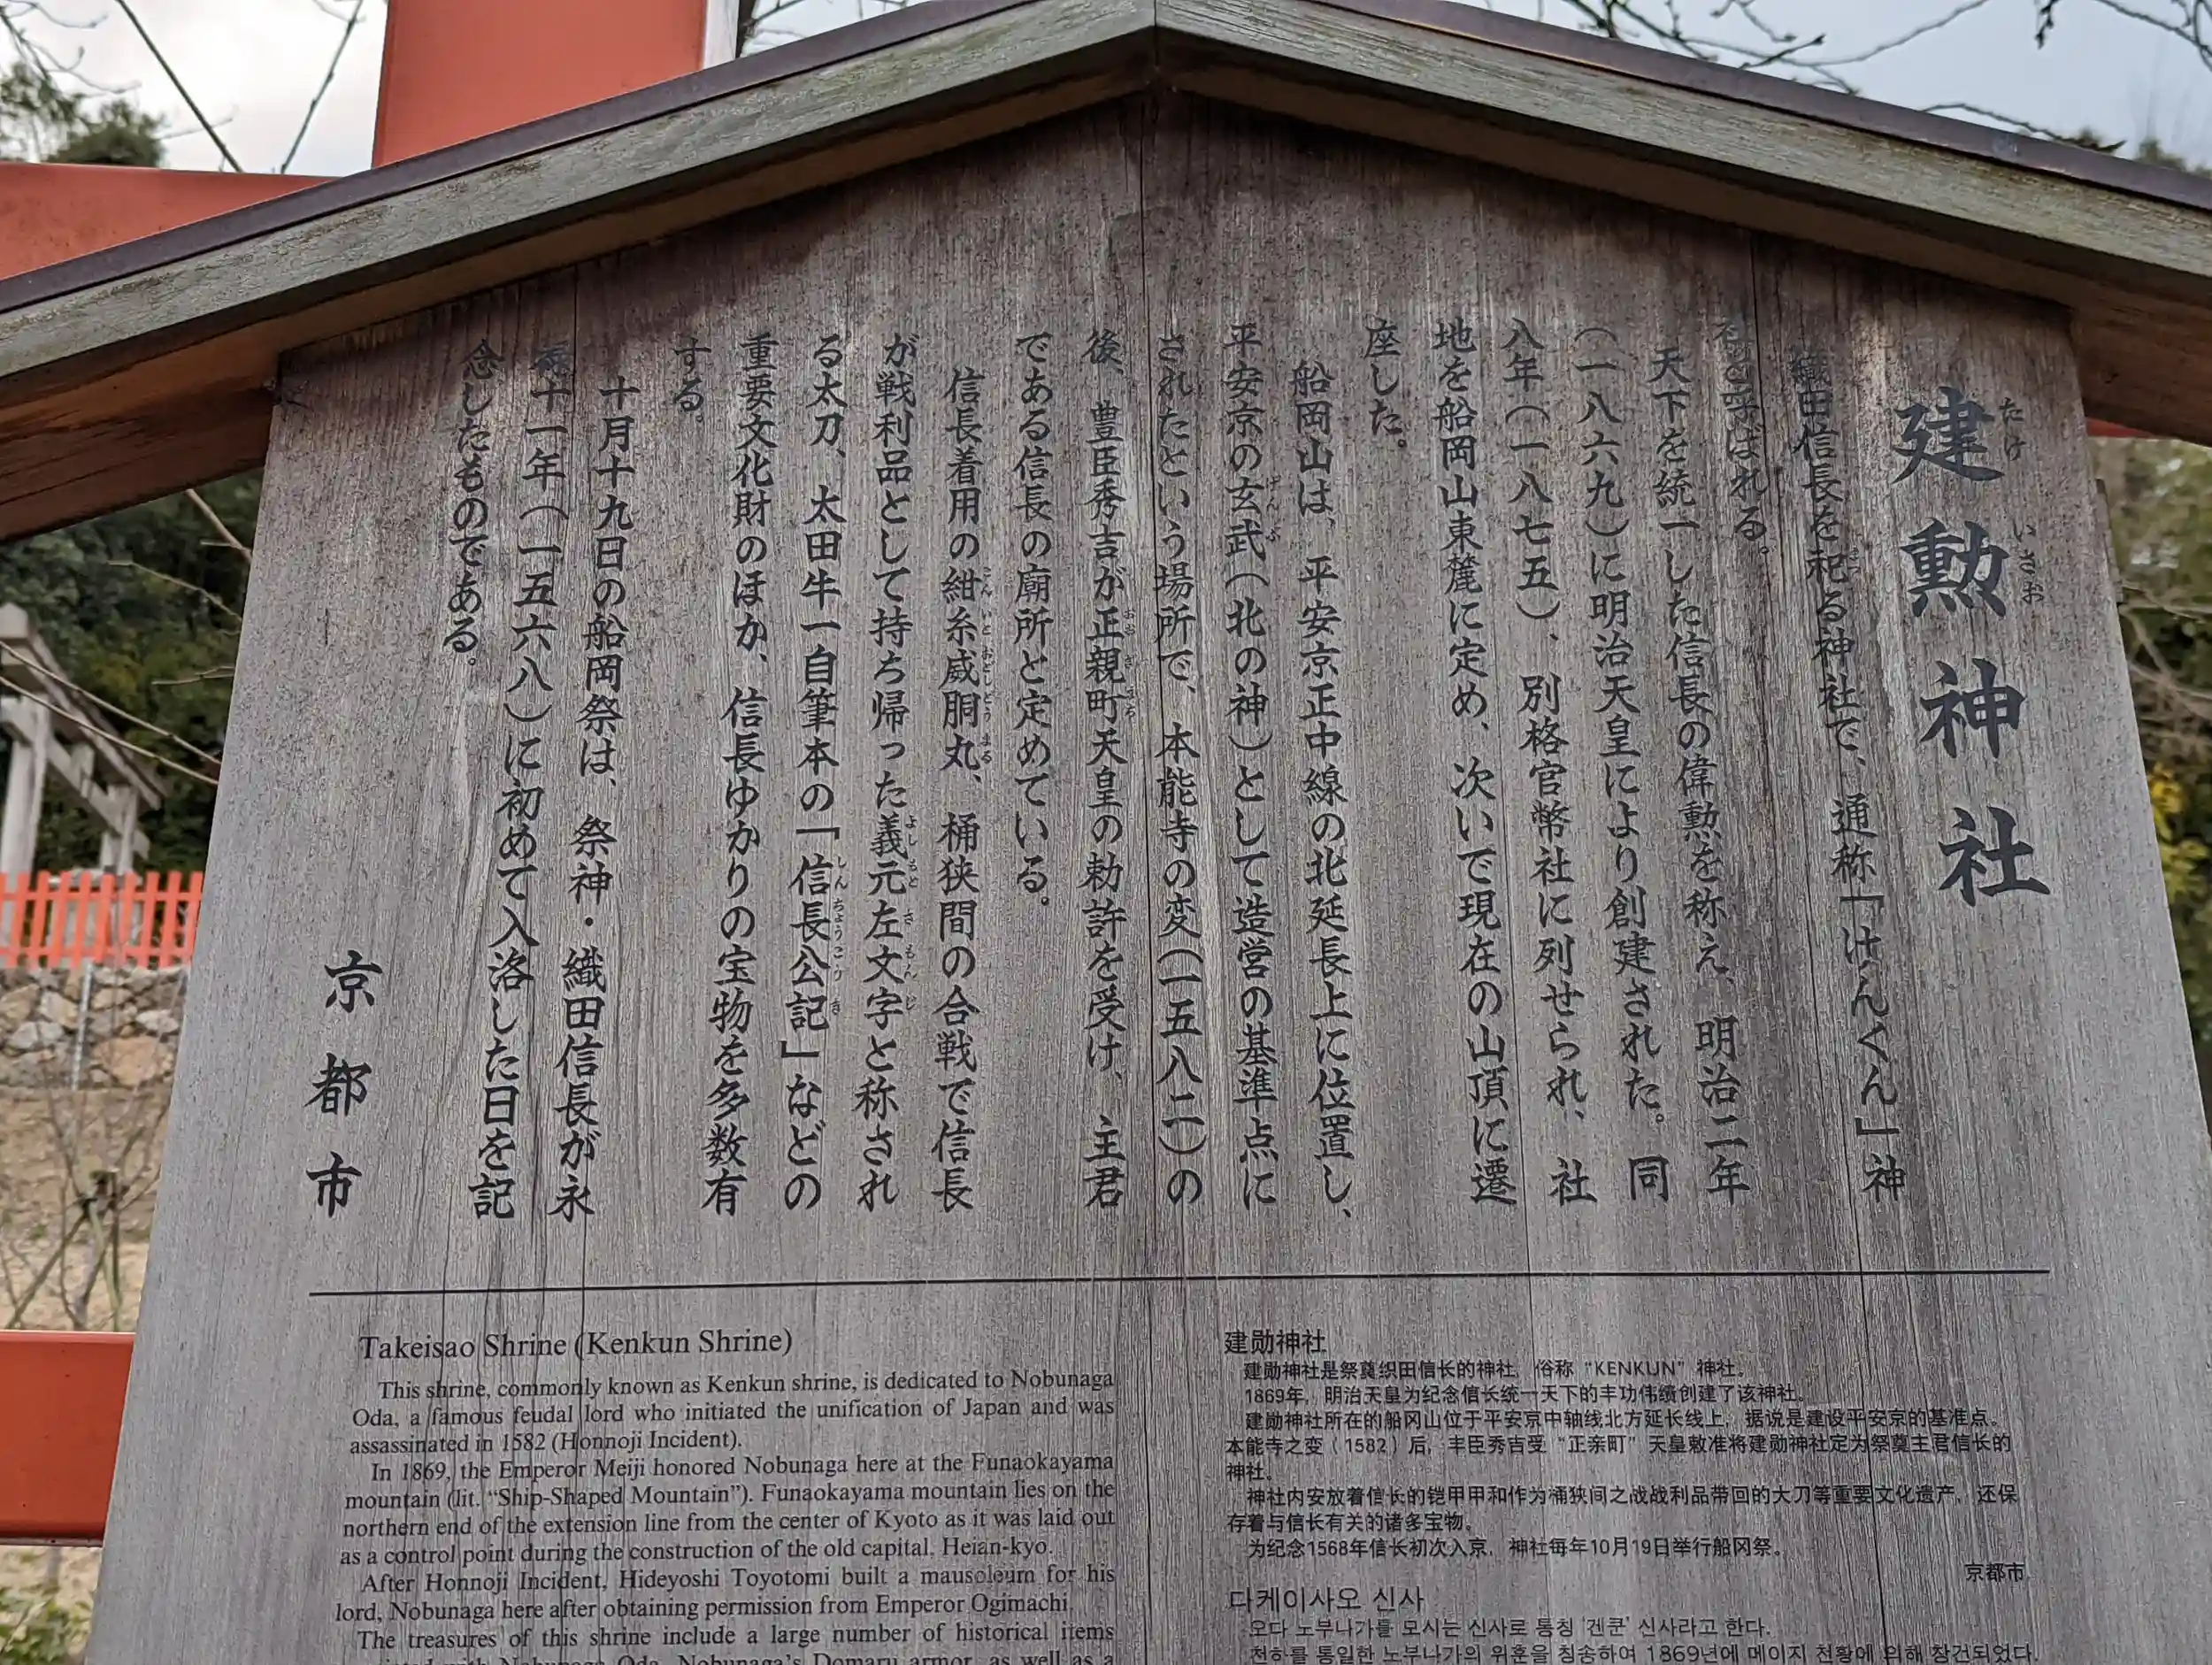 建勲神社
たけ いさお
織田信長を祀る神社で、通称「けんくん」神
社と呼ばれる。
天下を統一した信長の偉勲を称え、明治二年
（一八六九）に明治天皇により創建された。同
八年（一八七五）、別格官幣社に列せられ、社
地を船岡山東麓に定め、次いで現在の山頂に遷
座した。
船岡山は、平安京正中線の北延長上に位置し、
平安京の玄武（北の神）として造営の基準点に
されたという場所で、本能寺の変（一五八二）の
後、豊臣秀吉が正親町天皇の勅許を受け、主君
である信長の廟所と定めている。
信長着用の紺糸威胴丸、桶狭間の合戦で信長
が戦利品として持ち帰った義元左文字と称され
る太刀、太田牛一自筆本の「信長公記」などの
重要文化財のほか、信長ゆかりの宝物を多数有
する。
十月十九日の船岡祭は、祭神・織田信長が永
禄十一年（一五六八）に初めて入洛した日を記
念したものである。
京都市
Takeisao Shrine (Kenkun Shrine)
This shrine, commonly known as Kenkun shrine, is dedicated to Nobunaga
Oda, a famous feudal lord who initiated the unification of Japan and was
assassinated in 1582 (Honnoji Incident).
In 1869, the Emperor Meiji honored Nobunaga here at the Funaokayama
mountain (lit. “Ship-Shaped Mountain”). Funaokayama mountain lies on the
northern end of the extension line from the center of Kyoto as it was laid out
as a control point during the construction of the old capital, Heian-kyo.
After Honnoji Incident, Hideyoshi Toyotomi built a mausoleum for his
lord, Nobunaga here after obtaining permission from Emperor Ogimachi.
The treasures of this shrine include a large number of historical items
with Nobunaga Oda. Nobunaga's Domaru armor, as well as a
建勋神社
建勋神社是祭奠织田信长的神社，俗称“KENKUN”神社。
1869年，明治天皇为纪念信长统一天下的丰功伟绩创建了该神社。
建勋神社所在的船冈山位于平安京中轴线北方延长线上，据说是建设平安京的基准点。
本能寺之变（1582）后，丰臣秀吉受“正亲町”天皇敕准将建勋神社定为祭奠主君信长的
神社。
神社内安放着信长的铠甲甲和作为桶狭间之战战利品带回的大刀等重要文化遗产，还保
存着与信长有关的诸多宝物。
为纪念1568年信长初次入京，神社每年10月19日举行船冈祭。
京都市
다케이사오 신사
오다 노부나가를 모시는 신사로 통칭 '겐쿤' 신사라고 한다.
천하를 통일한 노부나가의 위훈을 칭송하여 1869년에 메이지 천황에 의해 창건되었다.